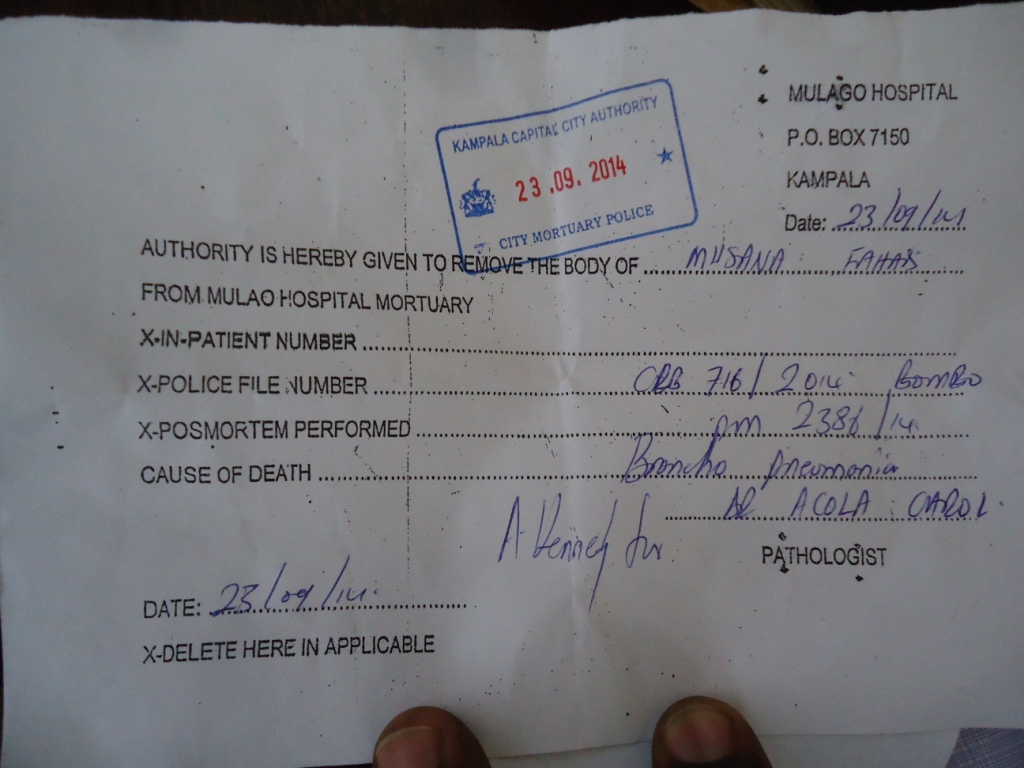 MULAGO HOSPITAL
P.O. BOX 7150
KAMPALA
Date: 23/09/14
KAMPALA CAPITAL CITY AUTHORITY
23.09.2014
CITY MORTUARY POLICE
AUTHORITY IS HEREBY GIVEN TO REMOVE THE BODY OF ..... MUSANA FAHAB
FROM MULAO HOSPITAL MORTUARY
X-IN-PATIENT NUMBER .....
X-POLICE FILE NUMBER ..... CRB 716/2014 BOMBO
X-POSMORTEM PERFORMED ..... pm 2386/14
CAUSE OF DEATH ..... Broncho pneumonia
DR ACOLA CAROL.
PATHOLOGIST
DATE: 23/09/14.
X-DELETE HERE IN APPLICABLE